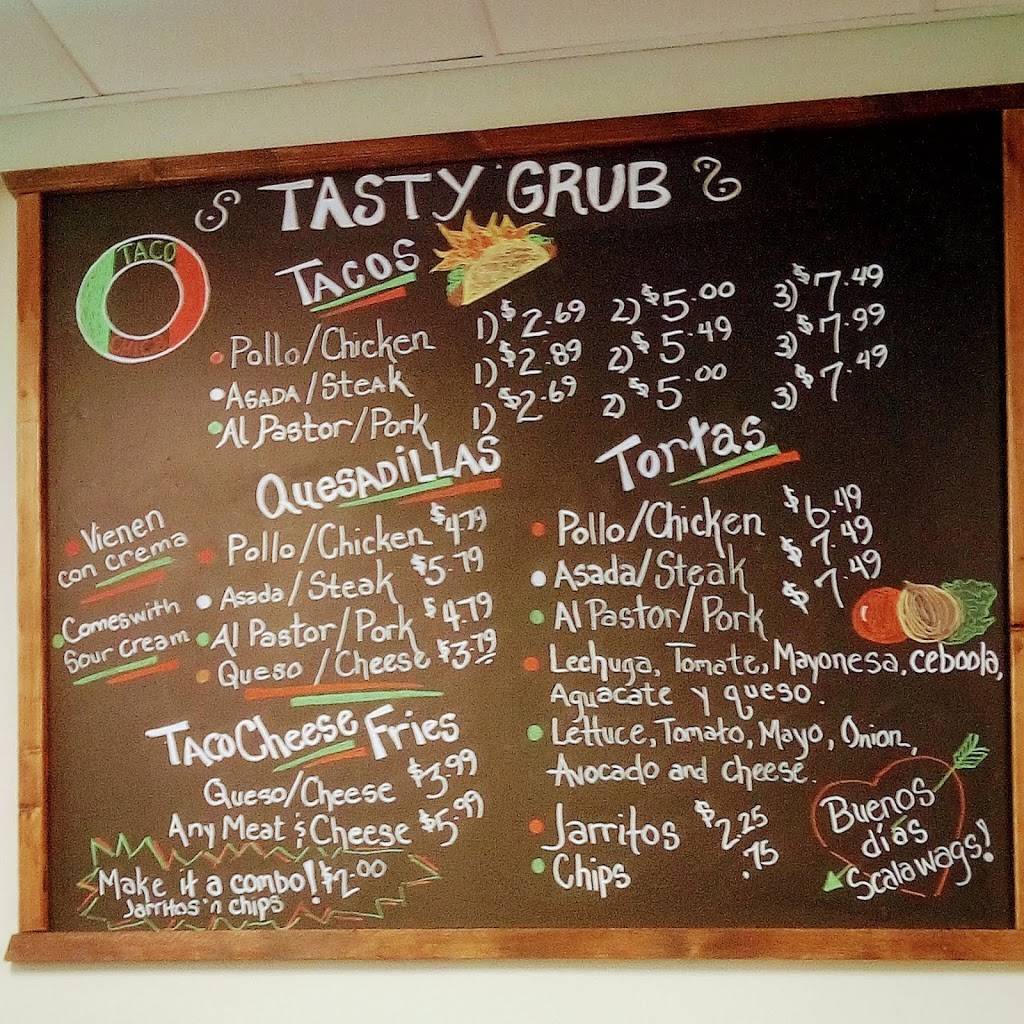 TASTY GRUB
TACO
TACOS
Pollo/Chicken 1) $2.69 2) $5.00 3) $7.49
ASADA/Steak 1) $2.89 2) $5.49 3) $7.99
Al Pastor/Pork 1) $2.69 2) $5.00 3) $7.49
QuesADiLLAS
Vienen
con crema
Comes with
Sour cream
Pollo/Chicken $4.79
Asada/Steak $5.79
Al Pastor/Pork $4.79
Queso/Cheese $3.79
TACO Cheese Fries
Queso/Cheese $3.99
Any Meat & Cheese $5.99
Make it a combo! $2.00
Jarritos 'n chips
Tortas
Pollo/Chicken $6.49
Asada/Steak $7.49
Al Pastor/Pork $7.49
Lechuga, Tomate, Mayonesa, ceboola,
Aguacate y queso.
Lettuce, Tomato, Mayo, Onion,
Avocado and cheese.
Jarritos $2.25
Chips .75
Buenos
días
Scalawags!